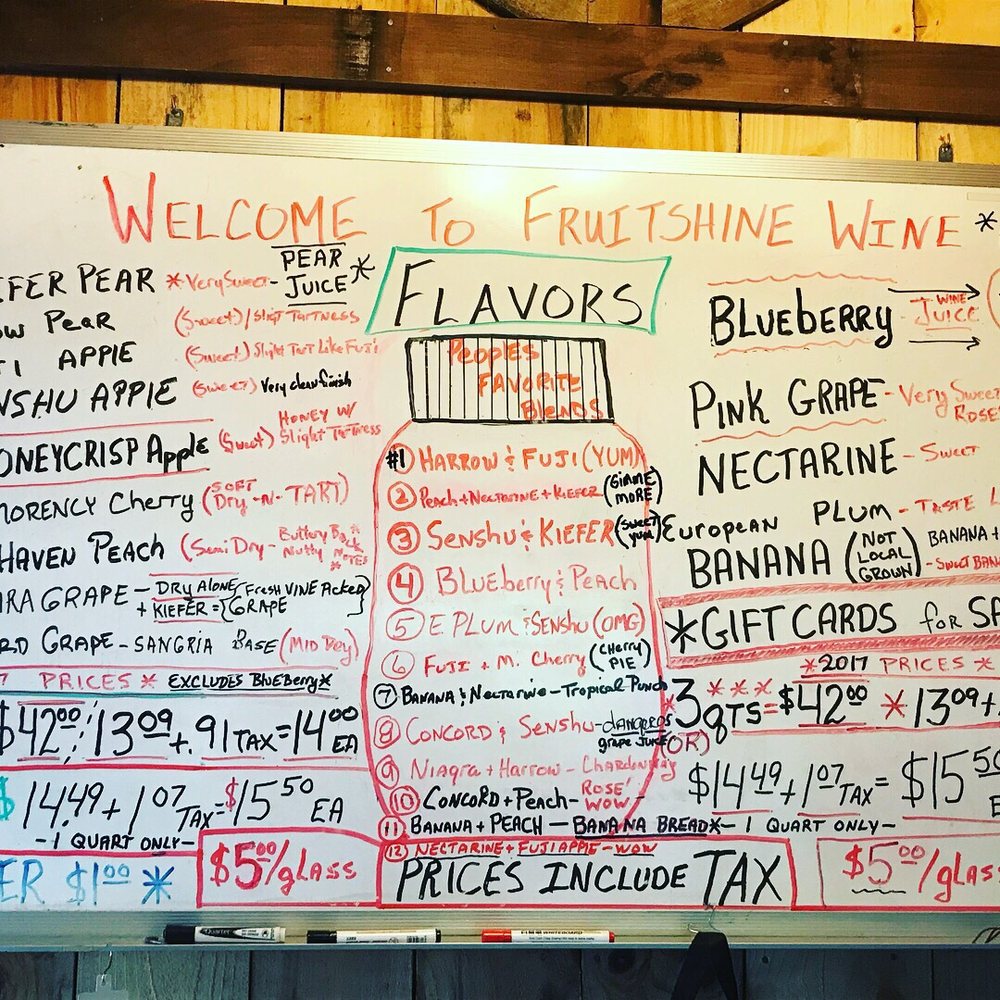 WELCOME TO FRUITSHINE WINE *
IFER PEAR *Very Sweet- PEAR JUICE *
OW PEAR (Sweet)/Sligt TARTNESS
I APPlE (Sweet) Slight TART Like FUJI
NSHU APPlE (Sweet) Very clean finish
ONEYCRISP Apple (Sweet) HONEY W/ Slight TARTNESS
MORENCY Cherry (SOFT Dry -N- TART)
HAVEN PEACH (Semi Dry-
RA GRAPE - DRY Alone (Fresh VINE Picked
+ KIEFER = GRAPE)
RD GRAPE - SANGRIA BASE (MID Dry)
7 PRICES * EXCLUDES BlUEBerry*
$42.00 13.09 + .91 TAX = 14.00 EA
$14.49 + 1.07 TAX = $15.50 EA
- 1 QUART ONLY-
ER $1.00 *
$5.00/glASS
FLAVORS
PeoPleS
FAVORITE
BlenDS
#1 HARROW & FUJI (YUM)
2 Peach + Nectarine + Kiefer (GIMME MORE)
3 Senshu & KIEFER (SWEET yum)
4 BLUEberry & PEACH
5 E. PLUM & SENSHU (OMG)
6 FUJI + M. Cherry (CHerry PIE)
7 BANANA & Nectarine - Tropical Punch
8 CONCORD & SENSHU - dangeros grape JUICE
9 NIAgRA + HARROW - CHARDONNAY
10 CONCORD + PEACH - ROSE' WOW -
11 BANANA + PEACH - BANANA BREAD*
12 NECTARINE + FUJI APPlE - WOW
PRICES INCLUDE TAX
BLUeberry WINE JUICE
PINK GRAPE - Very Sweet
ROSE
NECTARINE - Sweet
EUROPEAN PLUM - TASTE L
BANANA (NOT LOCAL GROWN) BANANA +
- Sweet BANA
*GIFT CARDS for SA
*2017 PRICES *
3 QTS = $42.00 * 13.09 +
(OR)
$14.49 + 1.07 TAX = $15.50 E
- 1 QUART ONLY-
$5.00/glASS